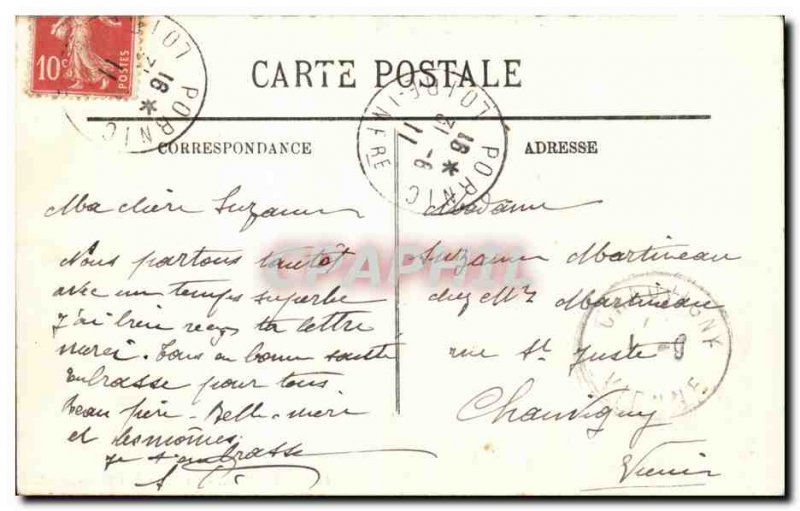 10c
POSTES
PORNIC
LOIRE-INFRE
CARTE POSTALE
PORNIC
LOIRE-INFRE
16 * 21-6 11
CORRESPONDANCE
ADRESSE
Ma chère Suzanne
Nous partons tantôt
avec un temps superbe
J'ai bien reçu ta lettre
merci. Tous en bonne santé
Embrasse pour tous
Beau père. Belle-mère
et les mômes
Je t'embrasse
A
Madame
Suzanne Martineau
chez Mr Martineau
rue St Juste
Chauvigny
Vienne
CHAUVIGNY
VIENNE
CPAPHIL